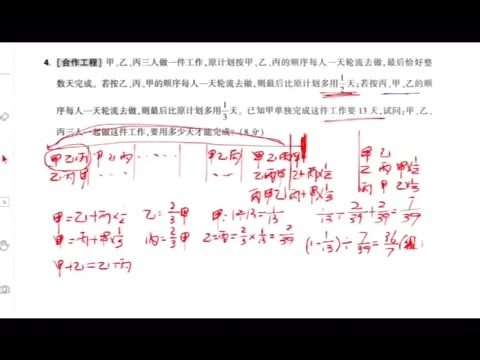 4. [合作工程] 甲、乙、丙三人做一件工作,原计划按甲、乙、丙的顺序每人一天轮流去做,最后恰好整
数天完成。若按乙、丙、甲的顺序每人一天轮流去做,则最后比原计划多用1/2天;若按丙、甲、乙的顺
序每人一天轮流去做,则最后比原计划多用1/3天。已知甲单独完成这件工作要13天,试问:甲、乙、
丙三人一起做这件工作,要用多少天才能完成?(8分)
甲乙丙 甲乙丙 ...... 甲乙丙 甲乙丙甲 甲 乙
乙丙甲 乙丙甲 乙+丙×1/2 乙 丙 甲×1/2
丙甲乙 丙+甲×1/3 丙 甲 乙×1/3
甲=乙+丙×1/2 乙=2/3甲 甲:1÷13=1/13 1/13+2/39+2/39=7/39
甲=丙+甲×1/3 丙=2/3甲 乙=丙=2/3×1/13=2/39 (1-1/13)÷7/39=36/7
甲+乙=乙+丙